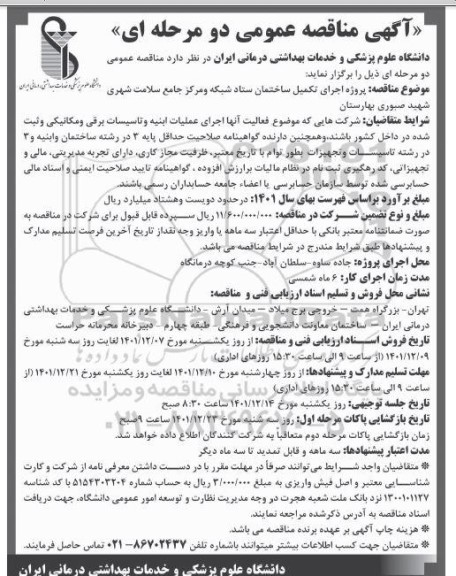 «آگهی مناقصه عمومی دو مرحله ای»
دانشگاه علوم پزشکی و خدمات بهداشتی درمانی ایران در نظر دارد مناقصه عمومی
دو مرحله ای ذیل را برگزار نماید:
موضوع مناقصه: پروژه اجرای تکمیل ساختمان ستاد شبکه ومرکز جامع سلامت شهری
شهید صبوری بهارستان
شرایط متقاضیان: شرکت هایی که موضوع فعالیت آنها اجرای عملیات ابنیه و تاسیسات برقی ومکانیکی وثبت
شده در داخل کشور باشند،وهمچنین دارنده گواهینامه صلاحیت حداقل پایه ۳ در رشته ساختمان وابنیه و۳
در رشته تاسیسات وتجهیزات بطور توام با تاریخ معتبر، ظرفیت مجاز کاری، دارای تجربه مدیریتی، مالی و
تجهیزاتی، کد رهگیری ثبت نام در نظام مالیات برارزش افزوده ، گواهینامه تایید صلاحیت ایمنی و اسناد مالی
حسابرسی شده توسط سازمان حسابرسی یا اعضاء جامعه حسابداران رسمی باشند.
مبلغ برآورد براساس فهرست بهای سال ۱۴۰۱: درحدود دویست وهشتاد میلیارد ریال
مبلغ و نوع تضمین شرکت در مناقصه: ۱۱/۶۰۰/۰۰۰/۰۰۰ ریال سپرده قابل قبول برای شرکت در مناقصه به
صورت ضمانتنامه معتبر بانکی با حداقل اعتبار سه ماهه یا واریز وجه نقداز تاریخ آخرین فرصت تسلیم مدارک
و پیشنهادها طبق شرایط مندرج در شرایط مناقصه می باشد.
محل اجرای پروژه: جاده ساوه-سلطان آباد-جنب کوچه درمانگاه
مدت زمان اجرای کار: ۶ ماه شمسی
نشانی محل فروش و تسلیم اسناد ارزیابی فنی و مناقصه:
تهران- بزرگراه همت – خروجی برج میلاد – میدان آرش – دانشگاه علوم پزشکی و خدمات بهداشتی
درمانی ایران – ساختمان معاونت دانشجویی و فرهنگی- طبقه چهارم - دبیرخانه محرمانه حراست
تاریخ فروش اسناد ارزیابی فنی و مناقصه: از روز یکشنبه مورخ ۱۴۰۱/۱۲/۰۷ لغایت روز سه شنبه مورخ
۱۴۰۱/۱۲/۰۹ (از ساعت ۹ الی ساعت ۱۵:۳۰ روزهای اداری)
مهلت تسلیم مدارک و پیشنهادها: از روز چهارشنبه مورخ ۱۴۰۱/۱۲/۱۰ لغایت روز یکشنبه مورخ ۱۴۰۱/۱۲/۲۱ (از
ساعت ۹ الی ساعت ۱۵:۳۰ روزهای اداری)
تاریخ جلسه توجیهی: روز یکشنبه مورخ ۱۴۰۱/۱۲/۱۴ ساعت ۸:۳۰ صبح
تاریخ بازگشایی پاکات مرحله اول: روز سه شنبه مورخ ۱۴۰۱/۱۲/۲۳ ساعت ۹صبح
زمان بازگشایی پاکات مرحله دوم متعاقبا به شرکت کنندگان اطلاع داده خواهد شد.
مدت اعتبار پیشنهادها: سه ماهه و قابل تمدید تا سه ماه دیگر
* متقاضیان واجد شرایط می‌توانند صرفاً در مهلت مقرر با در دست داشتن معرفی نامه از شرکت و کارت
شناسایی معتبر و اصل فیش واریزی به مبلغ ۳/۰۰۰/۰۰۰ ریال به حساب شماره ۵۱۵۴۳۰۳۲۰۴ با کد شناسه
۱۳۰۰۱۰۱۱۲۷ نزد بانک ملت شعبه هجرت در وجه مدیریت نظارت و توسعه امور عمومی دانشگاه، جهت دریافت
اسناد مناقصه به آدرس ذکرشده مراجعه نمایند.
* هزینه چاپ آگهی بر عهده برنده مناقصه می باشد.
* متقاضیان جهت کسب اطلاعات بیشتر میتوانند باشماره تلفن ۸۶۷۰۲۴۳۷-۰۲۱ تماس حاصل فرمایند.
دانشگاه علوم پزشکی و خدمات بهداشتی درمانی ایران